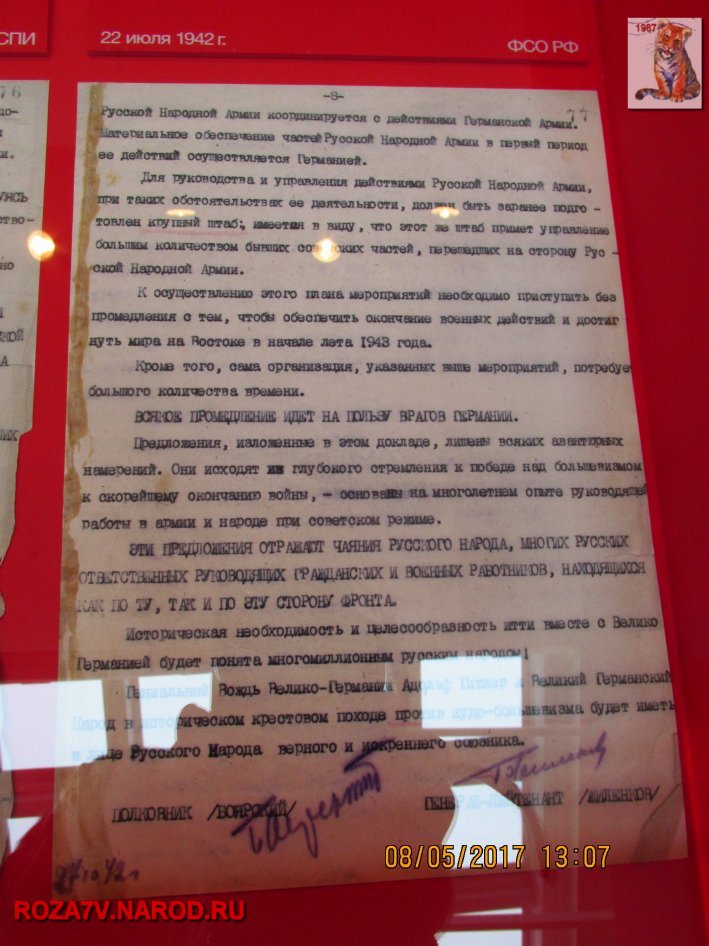 СПИ
22 июля 1942 г.
ФСО РФ
1987
76
-8-
77
Русской Народной Армии координируется с действиями Германской Армии.
Материальное обеспечение частей Русской Народной Армии в первый период
ее действий осуществляется Германией.
Для руководства и управления действиями Русской Народной Армии,
при таких обстоятельствах ее деятельности, должен быть заранее подго-
товлен крупный штаб; имеется в виду, что этот же штаб примет управление
большим количеством бывших советских частей, перешедших на сторону Рус-
ской Народной Армии.
К осуществлению этого плана мероприятий необходимо приступить без
промедления с тем, чтобы обеспечить окончание военных действий и достиг
нуть мира на Востоке в начале лета 1943 года.
Кроме того, сама организация, указанных выше мероприятий, потребуе
большого количества времени.
ВСЯКОЕ ПРОМЕДЛЕНИЕ ИДЕТ НА ПОЛЬЗУ ВРАГОВ ГЕРМАНИИ.
Предложения, изложенные в этом докладе, лишены всяких авантюрных
намерений. Они исходят из глубокого стремления к победе над большевизмом
к скорейшему окончанию войны, - основаны на многолетнем опыте руководящей
работы в армии и народе при советском режиме.
ЭТИ ПРЕДЛОЖЕНИЯ ОТРАЖАЮТ ЧАЯНИЯ РУССКОГО НАРОДА, МНОГИХ РУССКИХ
ОТВЕТСТВЕННЫХ РУКОВОДЯЩИХ ГРАЖДАНСКИХ И ВОЕННЫХ РАБОТНИКОВ, НАХОДЯЩИХСЯ
КАК ПО ТУ, ТАК И ПО ЭТУ СТОРОНУ ФРОНТА.
Историческая необходимость и целесообразность итти вместе с Велико
Германией будет понята многомиллионным русским народом!
Гениальный Вождь Велико-Германии Адольф Гитлер и Великий Германский
Народ в историческом крестовом походе против иудо-большевизма будет иметь
в лице Русского Народа верного и искреннего союзника.
ПОЛКОВНИК /БОЯРСКИЙ/
ГЕНЕРАЛ-ЛЕЙТЕНАНТ /ЖИЛЕНКОВ/
08/05/2017 13:07
ROZA7V.NAROD.RU